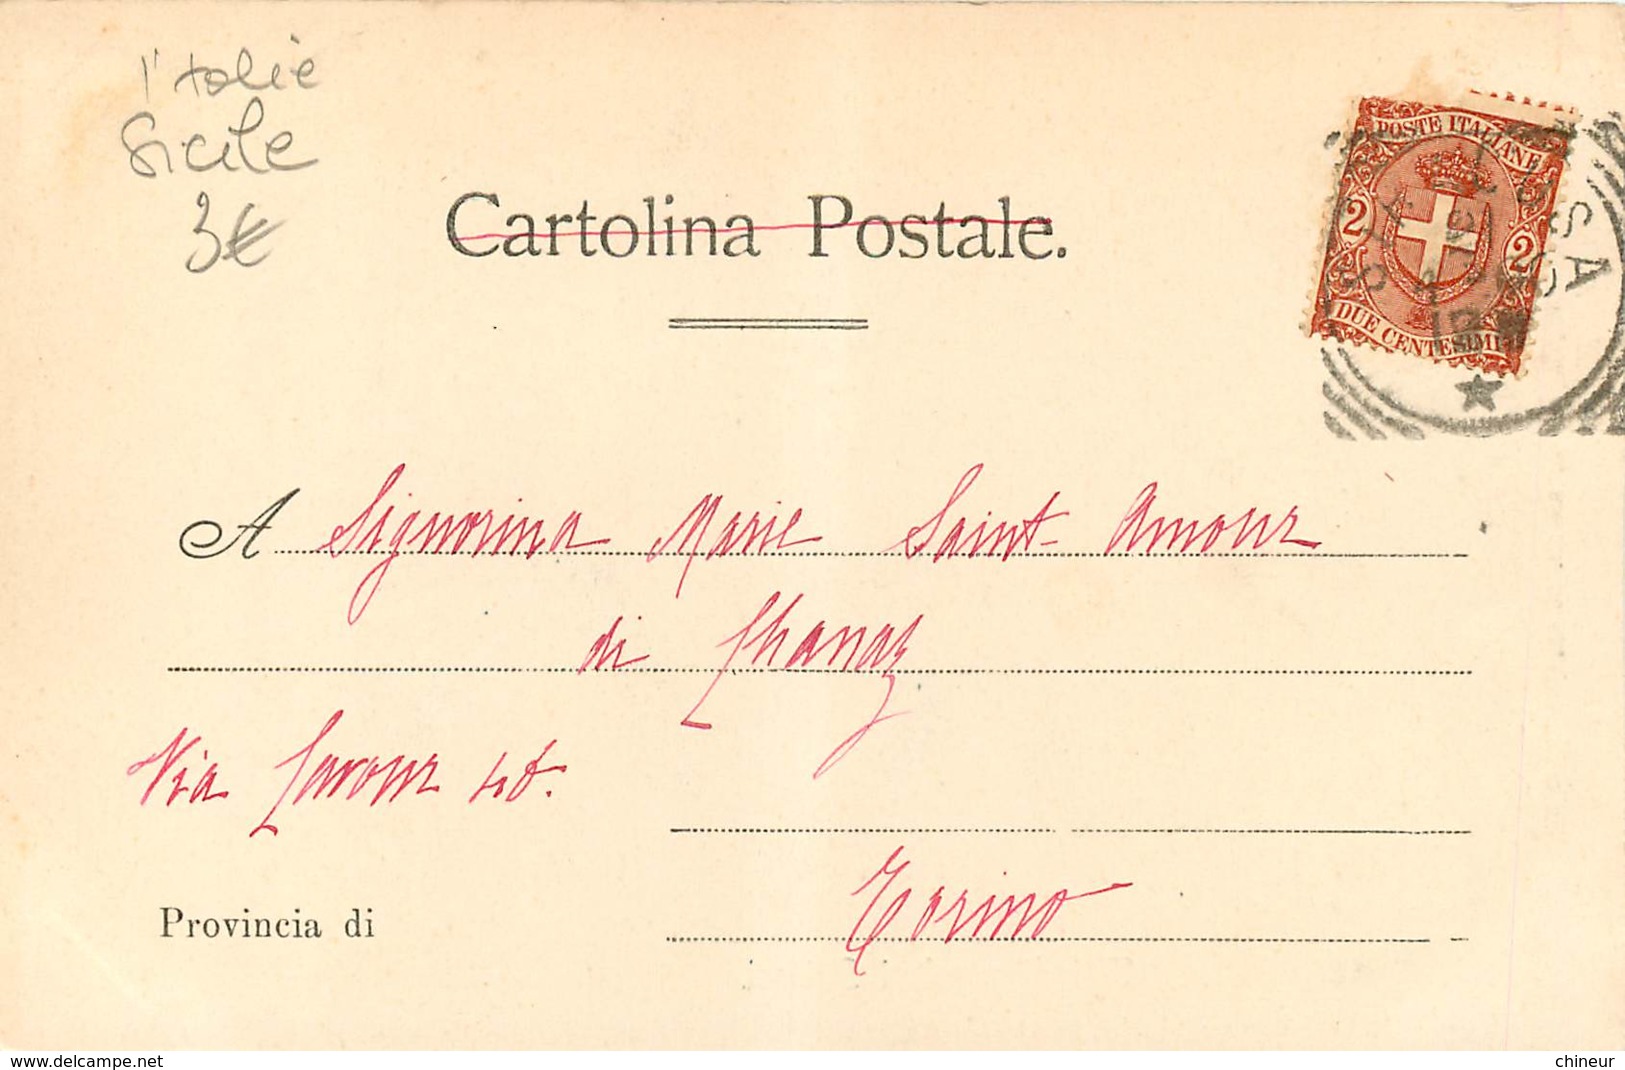 l'talie
Sicile
3€
Cartolina Postale.
POSTE ITALIANE
2 2
DUE CENTESIMI
A Signorina Marie Saint-Amour
di Chanaz
Via Cavour 48.
Torino
Provincia di
www.delcampe.net
chineur